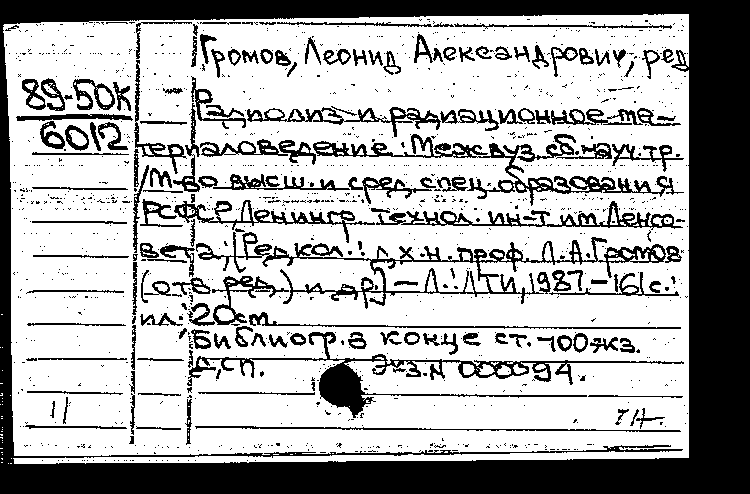 Громов, Леонид Александрович, ред
89-50К
6012
Радиолиз и радиационное ма-
териаловедение: Межвуз. сб. науч. тр.
/М-во высш. и сред. спец. образования
РСФСР, Ленингр. технол. ин-т им. Ленсо-
вета; [Редкол.: д.х.н. проф. Л.А. Громов
(отв. ред.) и др.] — Л.: ЛТИ, 1987. — 161 с.:
ил.; 20 см.
Библиогр. в конце ст. - 100 экз.
Д,сп. Экз. N 000094.
11